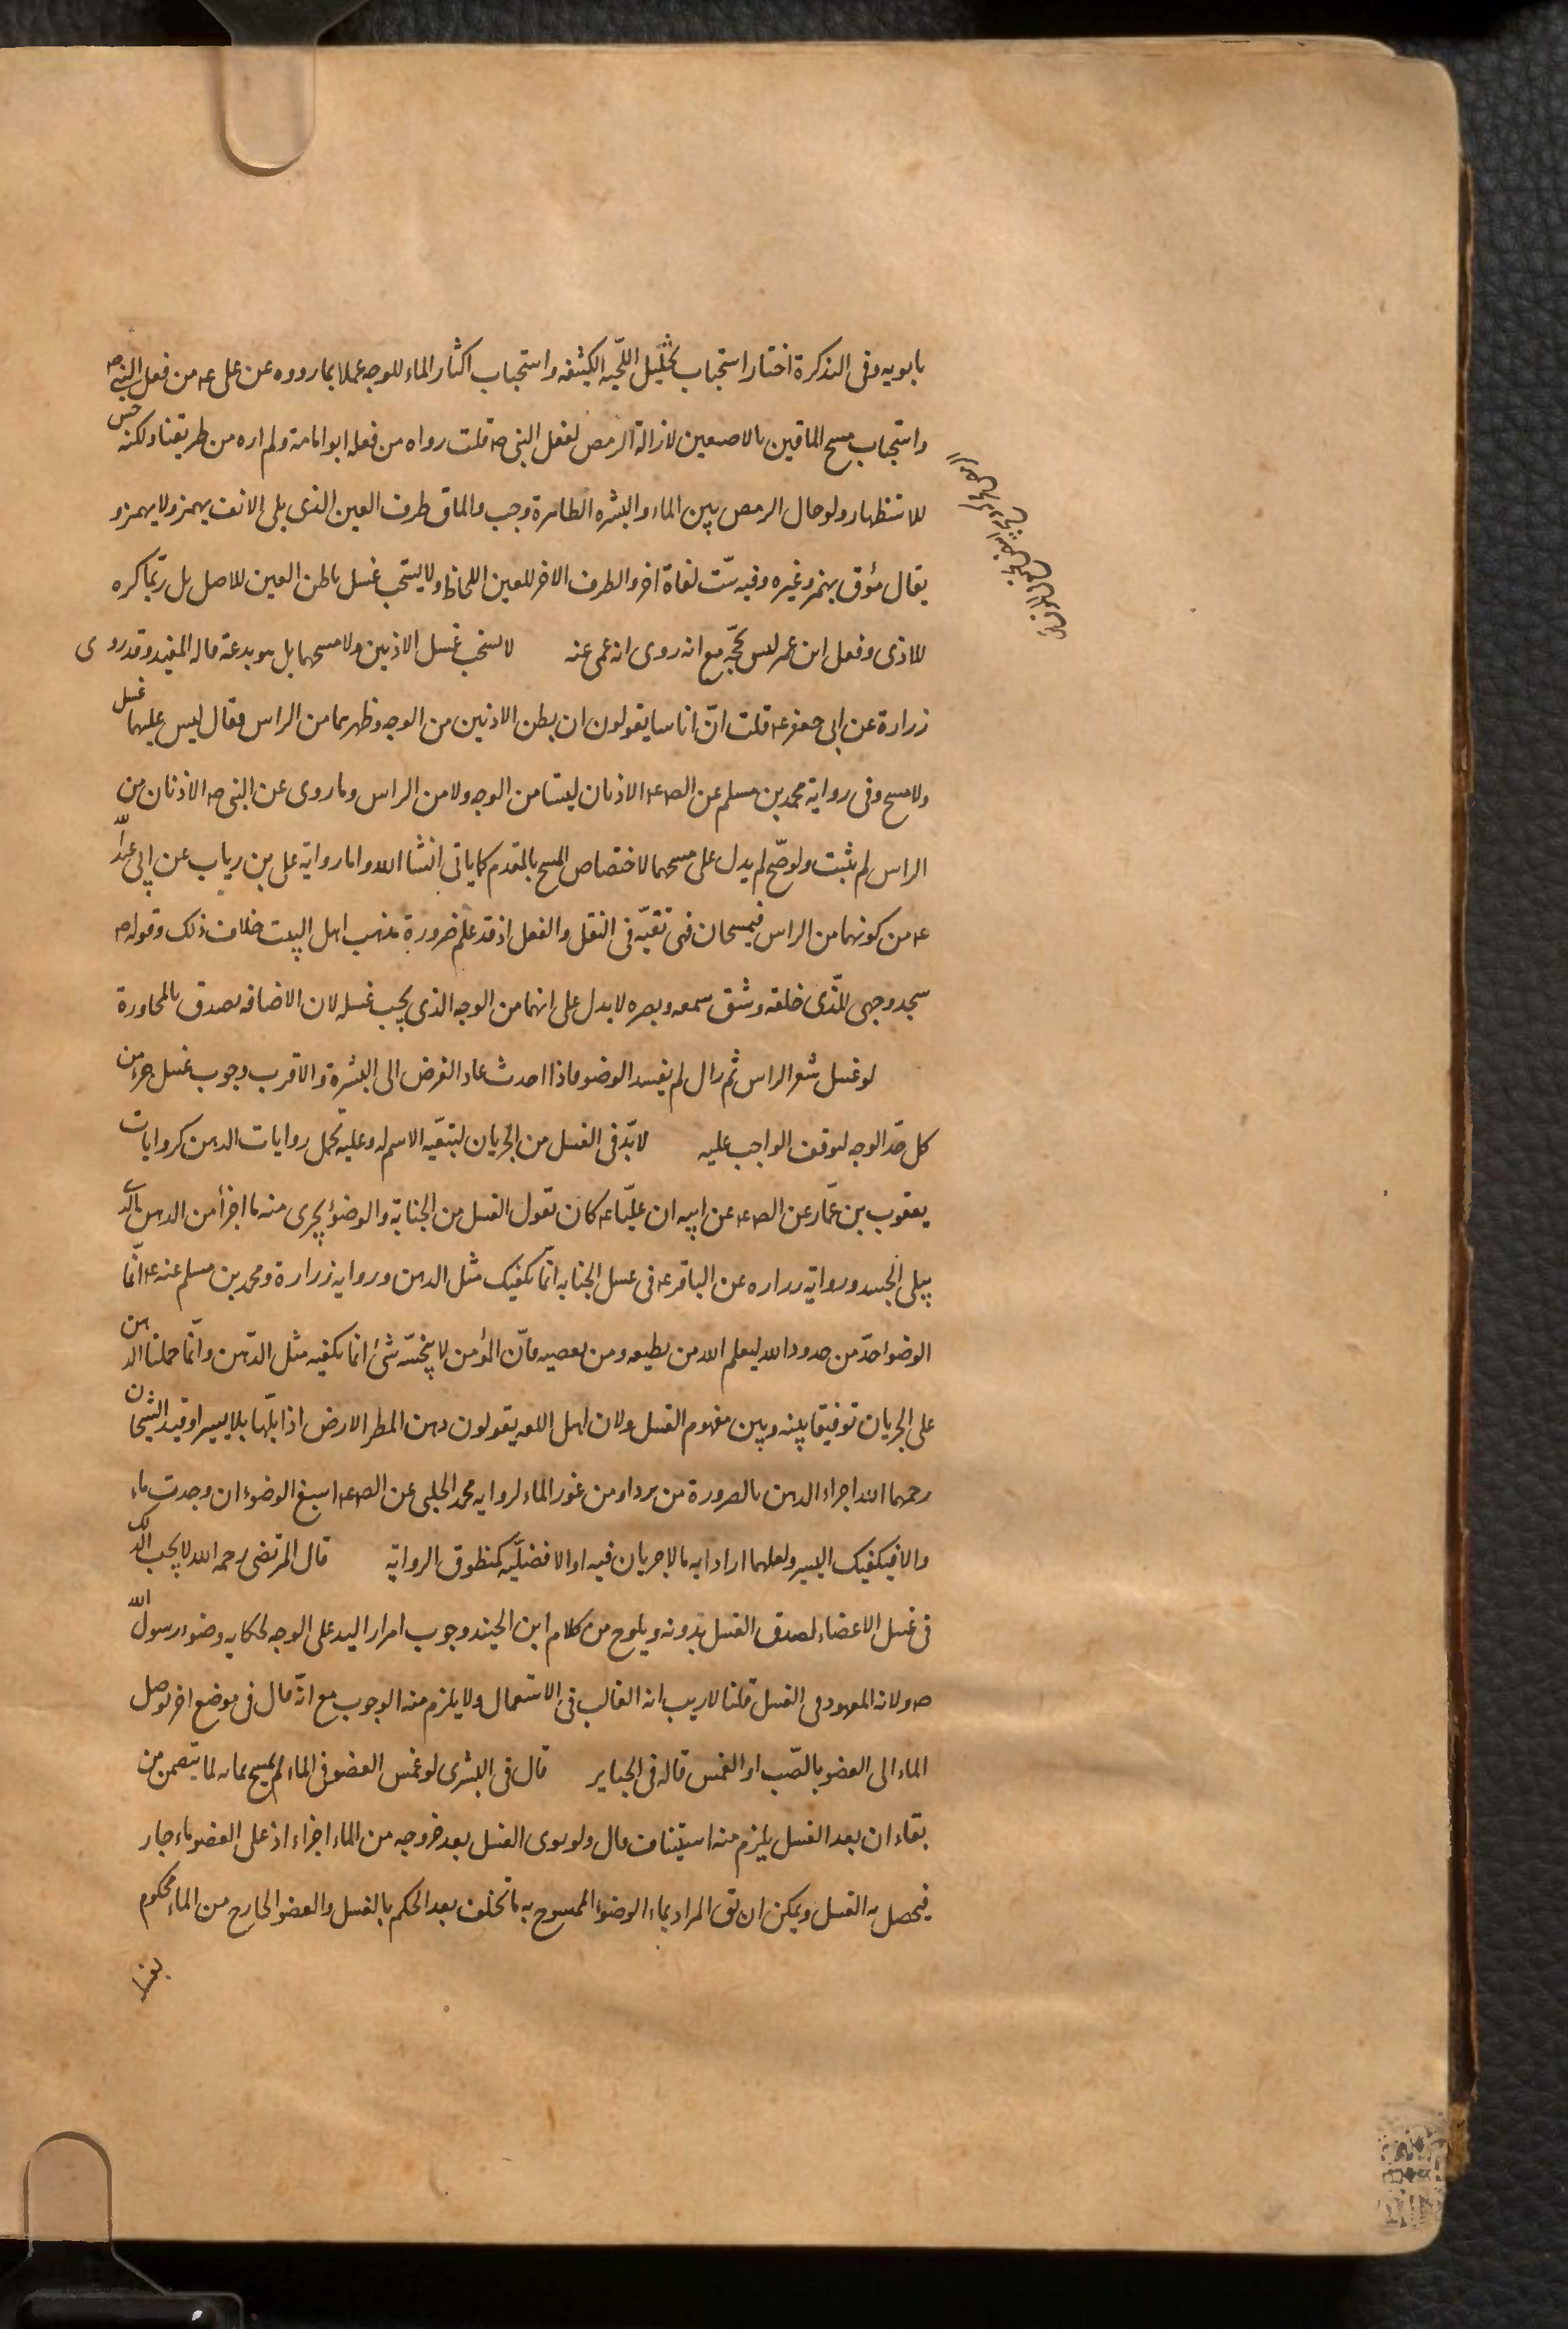 بابويه وفى التذكرة اختار استحباب تخليل اللحيه الكثيفه واستحباب اكثار الماء للوجه عملا بما رووه عن على ع من فعل النبى ص
واستحباب مسح الماقين بالاصبعين لازالة الرمص لفعل النبى ص قلت رواه من فعله ابو امامة ولم اره من طريقنا ولكنه حسن
للاستظهار ولو حال الرمص بين الماء والبشره الظاهرة وجب والماق طرف العين الذى يلى الانف يهمز ولا يهمز و
يقال مؤق بهمز وغيره وفيه ستّ لغات اخر والطرف الاخر للعين اللحاظ ولا يستحب غسل باطن العين للاصل بل ربّما كره
للاذى وفعل ابن عمر ليس بحجّه مع انه روى انه عمى عنه لا يستحب غسل الاذنين ولا مسحهما بل هو بدعة قاله المفيد وقد روى
زرارة عن ابى جعفر ع قلت انّ اناسا يقولون ان بطن الاذنين من الوجه وظهرهما من الراس فقال ليس عليهما غسل
ولا مسح وفى رواية محمد بن مسلم عن الص ع الاذنان ليستا من الوجه ولا من الراس وما روى عن النبى ص الاذنان من
الراس لم يثبت ولو صحّ لم يدل على مسحهما لاختصاص المسح بالمقدم كما ياتى انشا الله واما رواية على بن رياب عن ابى عبد الله
ع من كونهما من الراس فيمسحان فهى تقيّه فى النقل والفعل اذ قد علم ضرورة مذهب اهل البيت خلاف ذلك وقوله ص
سجد وجهى للّذى خلقه وشق سمعه وبصره لا يدل على انهما من الوجه الذى يجب غسله لان الاضافه تصدق بالمجاورة
لو غسل شعر الراس ثم زال لم يفسد الوضو فاذا احدث عاد الفرض الى البشرة والاقرب وجوب غسل جزء من
كل حدّ الوجه لتوقف الواجب عليه لا بدّ فى الغسل من الجريان لتبقيه الاسم له وعليه تحمل روايات الدهن كروايات
يعقوب بن عمّار عن الص ع عن ابيه ان عليّا ع كان يقول الغسل من الجنابة والوضوء يجرى منه ما اجزأ من الدهن الذى
يبلى الجسد ورواية زراره عن الباقر ع فى غسل الجنابه انّما يكفيك مثل الدهن ورواية زرارة ومحمد بن مسلم عنه ع انّما
الوضوا حدّ من حدود الله ليعلم الله من يطيعه ومن يعصيه فانّ المؤمن لا ينجسّه شئ انما يكفيه مثل الدّهن وانّما حملنا الدهن
على الجريان توفيقا بينه وبين مفهوم الغسل ولان اهل اللغه يقولون دهن المطر الارض اذا بلّها بلا يسيرا وقيد الشيخان
رحمهما الله اجزاء الدهن بالضرورة من برد او من عوز الماء لرواية محمد الحلبى عن الص ع اسبغ الوضوء ان وجدت ماء
والا فيكفيك اليسير ولعلهما ارادا به ما لا جريان فيه او الافضليّه كمنطوق الرواية قال المرتضى رحمه الله لا يجب الدلك
فى غسل الاعضاء لصدق الغسل بدونه ويلوح من كلام ابن الجنيد وجوب امرار اليد على الوجه لحكاية وضوء رسول الله
ص ولانه المعهود فى الغسل قلنا لا ريب انه الغالب فى الاستعمال ولا يلزم منه الوجوب مع انّه قال فى موضع اخر توصل
الماء الى العضو بالصّب او الغمس قاله فى الجبایر قال فى البشرى لو غمس العضو فى الماء لم يمسح بمائه لما يتضمن من
بقاء ان بعد الغسل يلزم منه استيناف قال ولو نوى الغسل بعد خروجه من الماء اجزاء اذ على العضو ماء جار
فيحصل به الغسل ويمكن ان يق المراد بماء الوضوء الممسوح به ما تخلف بعد الحكم بالغسل والعضو الخارج من الماء محكوم